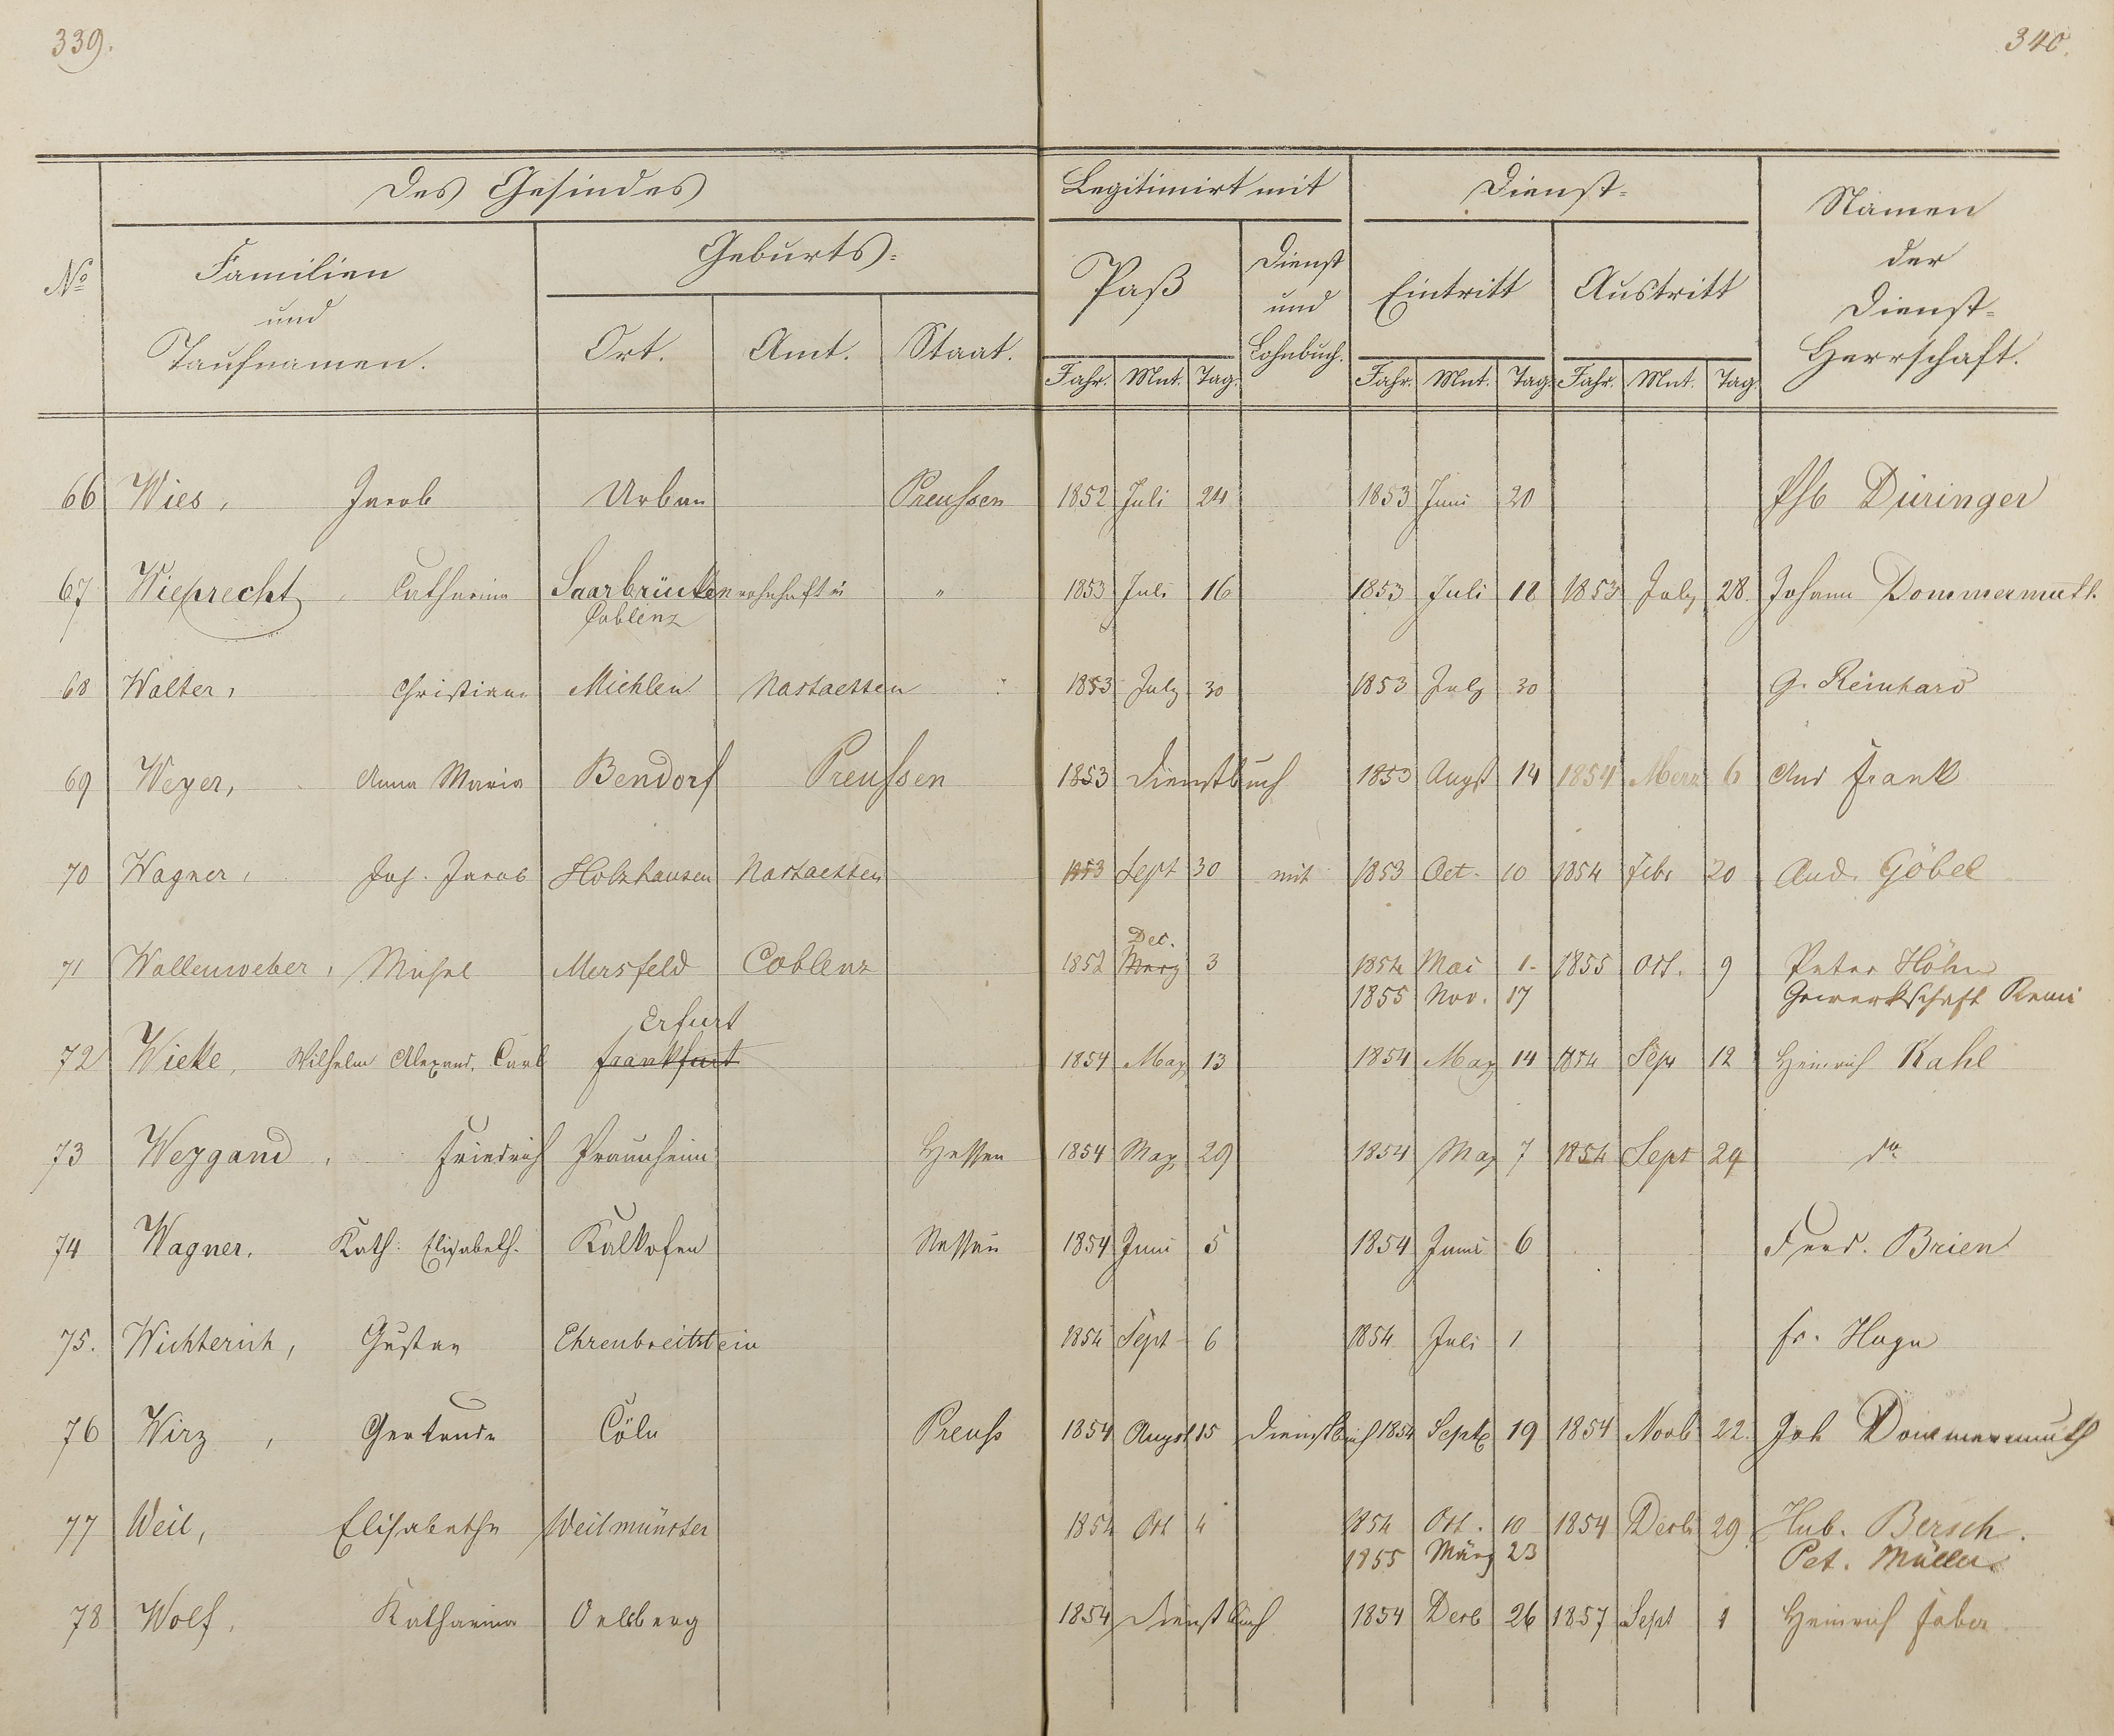 339.
340.
Des Gesindes
Legitimirt mit
Dienst-
Namen der Dienst-Herrschaft.
No
Familien und Taufnamen.
Geburts-
Paß
Dienst und Lohnbuch.
Eintritt
Austritt
Ort. Amt. Staat.
Jahr. Mnt. Tag. Jahr. Mnt. Tag. Jahr. Mnt. Tag.
66 Wies, Jacob Urbar Preussen 1852 Juli 24 1853 Juni 20 Düringer
67 Wieprecht, Catharina Saarbrücken wohnhaft in " 1853 Juli 16 1853 Juli 18 1853 July 28. Johann Dommermuth.
Coblenz
68 Walter, Christiane Miehlen Nastaetten 1853 July 30 1853 July 30 G. Reinhard
69 Weyer, Anna Maria Bendorf Preussen 1853 Dienstbuch 1853 Augst 14 1854 Merz 6 And Frank
70 Wagner, Joh. Jacob Holzhausen Nastaetten 1853 Sept 30 mit 1853 Oct. 10 1854 Febr 20 And. Göbel
Dec.
71 Wollenweber, Michel Mersfeld Coblenz 1852 Merz 3 1854 Mai 1. 1855 Oct. 9 Peter Höhn
1855 Nov. 17 Gewerkschaft Remi
Erfurt
72 Wicke, Wilhelm Alexand. Carl Frankfurt 1854 May 13 1854 May 14 1854 Sept 12 Heinrich Kahl
73 Weygand, Friedrich Praunheim Hessen 1854 May 29 1854 May 7 1854 Sept 24 do
74 Wagner, Kath: Elisabeth. Kalkofen Nassau 1854 Juni 5 1854 Juni 6 Ferd. Brien
75. Wichterich, Gustav Ehrenbreitstein 1854 Sept 6 1854 Juli 1 Fr. Hagn
76 Wirz, Gertrude Cöln Preuss 1854 Augst 15 Dienstbuch 1854 Sept 19 1854 Novb 22. Joh Dommermuth
77 Weil, Elisabethe Weilmünster 1854 Oct 4 1854 Oct. 10 1854 Decb 29 Hub. Bersch.
1855 März 23 Pet. Müller
78 Wolf, Katharina Oelsberg 1854 Dienstbuch 1854 Decb 26 1857 Sept 1 Heinrich Faber